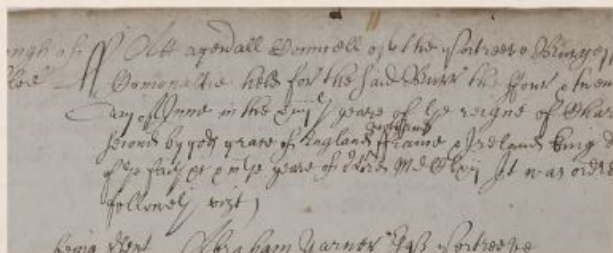 ough of Att a gen'all Councell of the Portreeve Burges
Comonaltie held for the said Burr the ffour & twen
day of June in the yeare of ye reigne of Char
second by gods grace of England Scotland ffrance & Ireland King
of ye faith &c & in ye yeare of or Lord MDCLxij It was order
followeth vizt
being p'sent Abraham Yarner Esq Portreeve